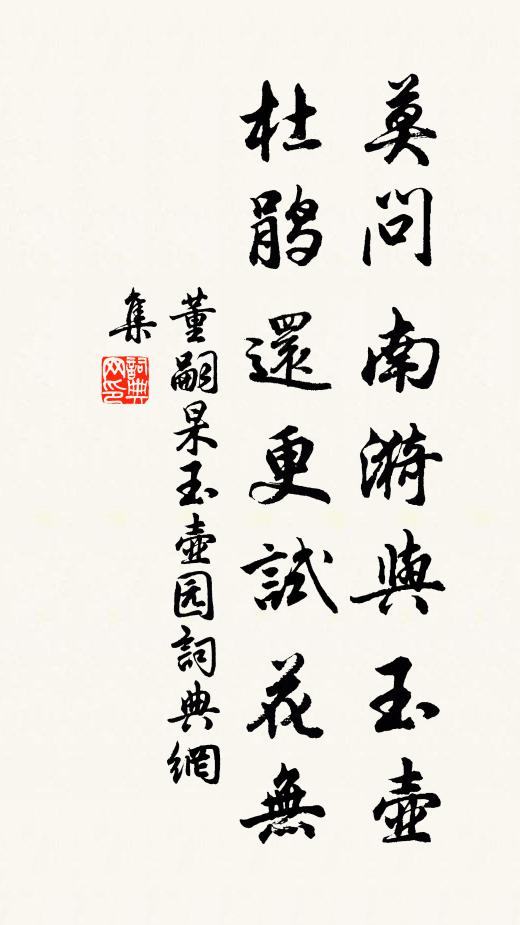 莫問南漪與玉壺
杜鵑還更試花無
董嗣杲玉壺园詞典網
集
詞典网印